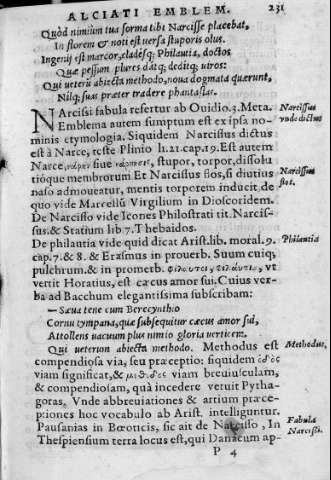 ALCIATI EMBLEM. 231
Quòd nimium tua forma tibi Narcisse placebat,
In florem & noti est versa stuporis olus.
Ingenij est marcor, cladesq́; Philautia, doctos
Quæ pessum plures datq́; deditq́; viros:
Qui veterũ abiecta methodo, noua dogmata quærunt,
Nilq́; suas præter tradere phantasias.
NArcissi fabula refertur ab Ouidio. 3. Meta. Narcissus
Emblema autem sumptum est ex ipsa no- vnde dictus
minis etymologia. Siquidem Narcissus dictus
est à Narce, teste Plinio li. 21. cap. 19. Est autem
Narce, siue stupor, torpor, dissolu
tióque membrorum Et Narcissus flos, si diutius Narcissus
naso admoueatur, mentis torporem inducit, de flos.
quo vide Marcellũ Virgilium in Dioscoridem.
De Narcisso vide Icones Philostrati tit. Narcis-
sus. & Statium lib 7. Thebaidos.
De philautia vide quid dicat Arist. lib. moral. 9. Philautia
cap. 7. & 8. & Erasmus in prouerb. Suum cuiq;
pulchrum. & in prouerb. vt
vertit Horatius, est cæcus amor sui. Cuius ver-
ba ad Bacchum elegantissima subscribam:
— Sæua tene cum Berecynthio
Cornu tympana, quæ subsequitur cæcus amor sui,
Attollens vacuum plus nimio gloria verticem.
Qui veterum abiecta methodo. Methodus est Methodus,
compendiosa via, seu præceptio: siquidem ὁδὸς
viam significat, & μέθοδος viam breuiusculam,
& compendiosam, quà incedere vetuit Pytha-
goras. Vnde abbreuiationes & artium præce-
ptiones hoc vocabulo ab Arist. intelliguntur.
Pausanias in Bœoticis, sic ait de Narcisso, In Fabula
Thespiensium terra locus est, qui Danacum ap- Narcissi.
P 4